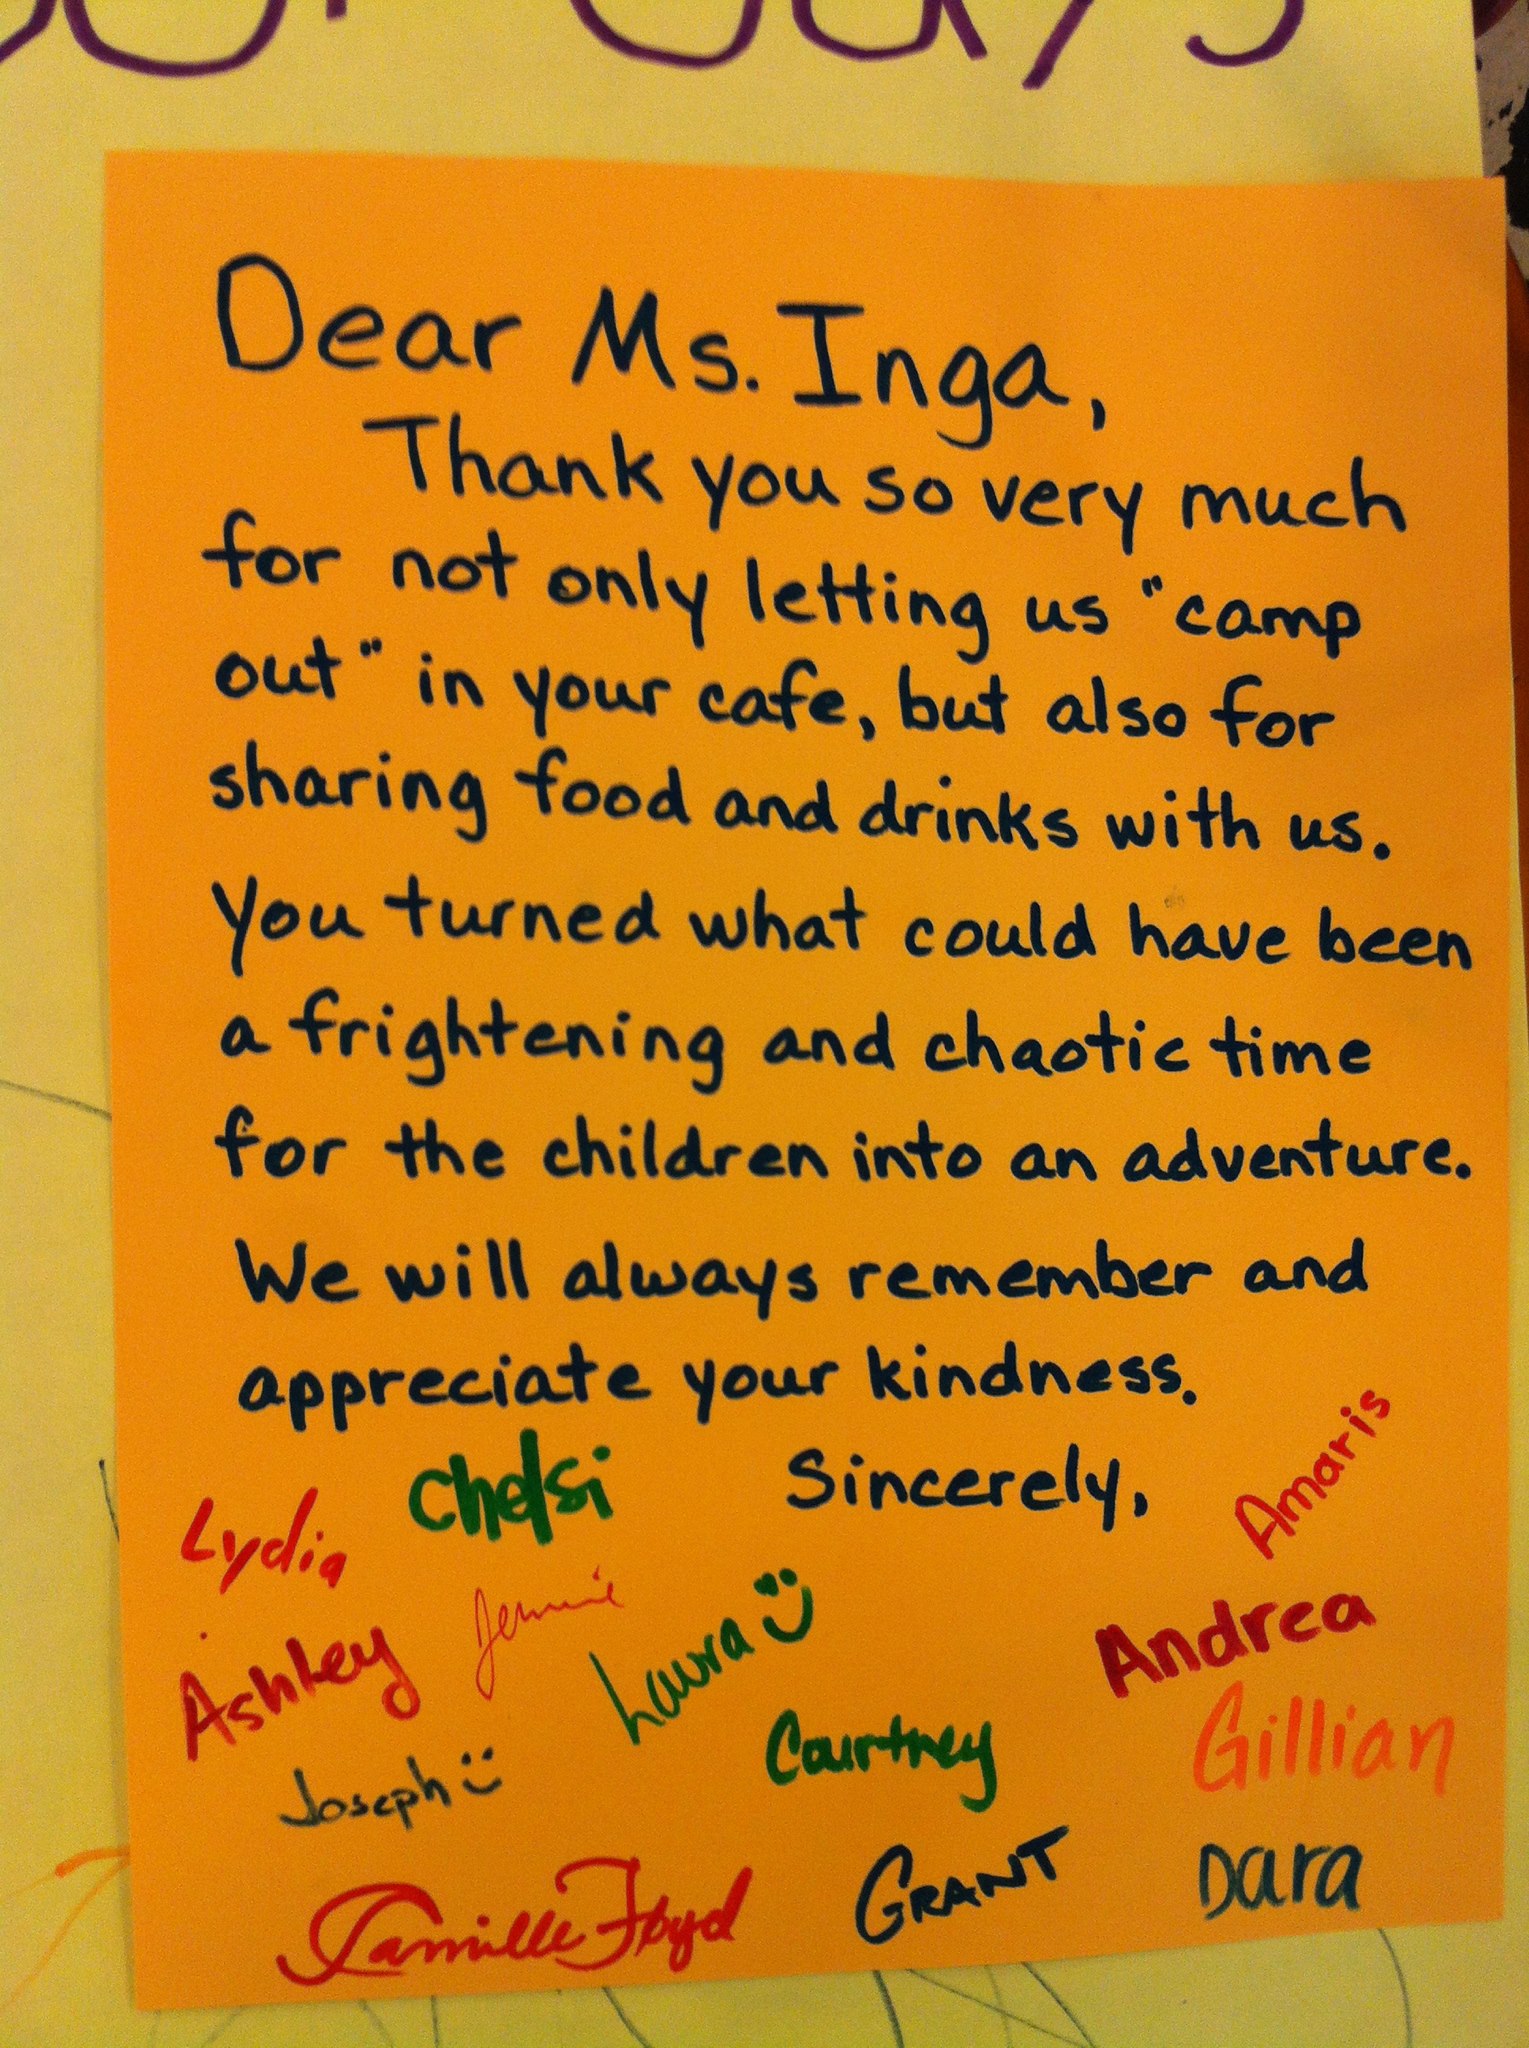 Dear Ms. Inga,
Thank you so very much
for not only letting us "camp
out" in your cafe, but also for
sharing food and drinks with us.
You turned what could have been
a frightening and chaotic time
for the children into an adventure.
We will always remember and
appreciate your kindness.
Sincerely,
Amaris
Lydia Chelsi
Ashley Jennie Laura Andrea
Joseph Courtney Gillian
Camille Floyd GRANT Dara